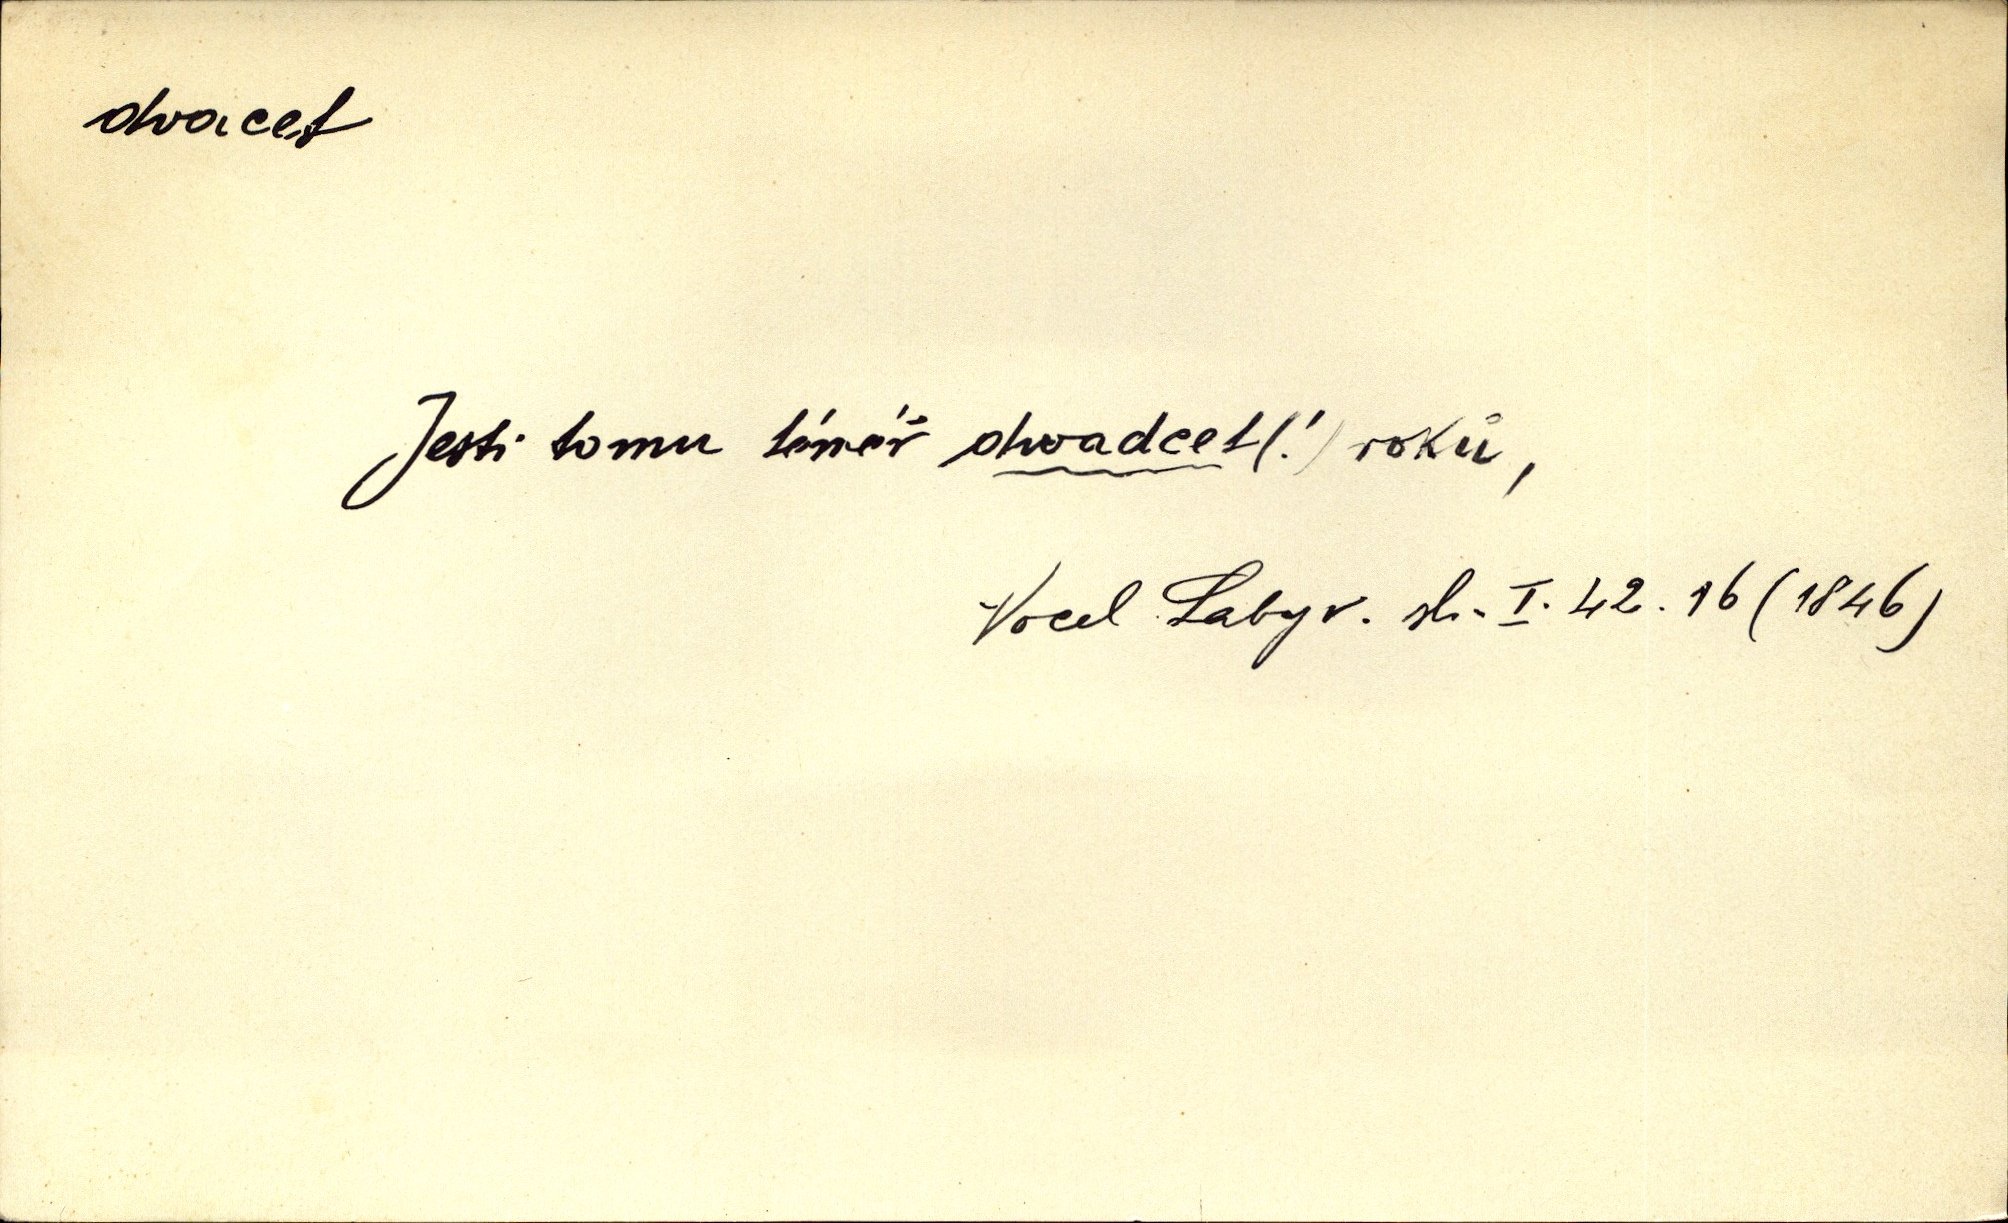 dvacet
Jesti tomu téměř dvadcet(!) roků,
Vocel Labyr. sl. I. 42. 16 (1846)